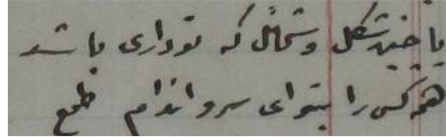 با چنین شکل و شمائل که تو داری باشد
هر کس را بتوای سرو اندام طمع